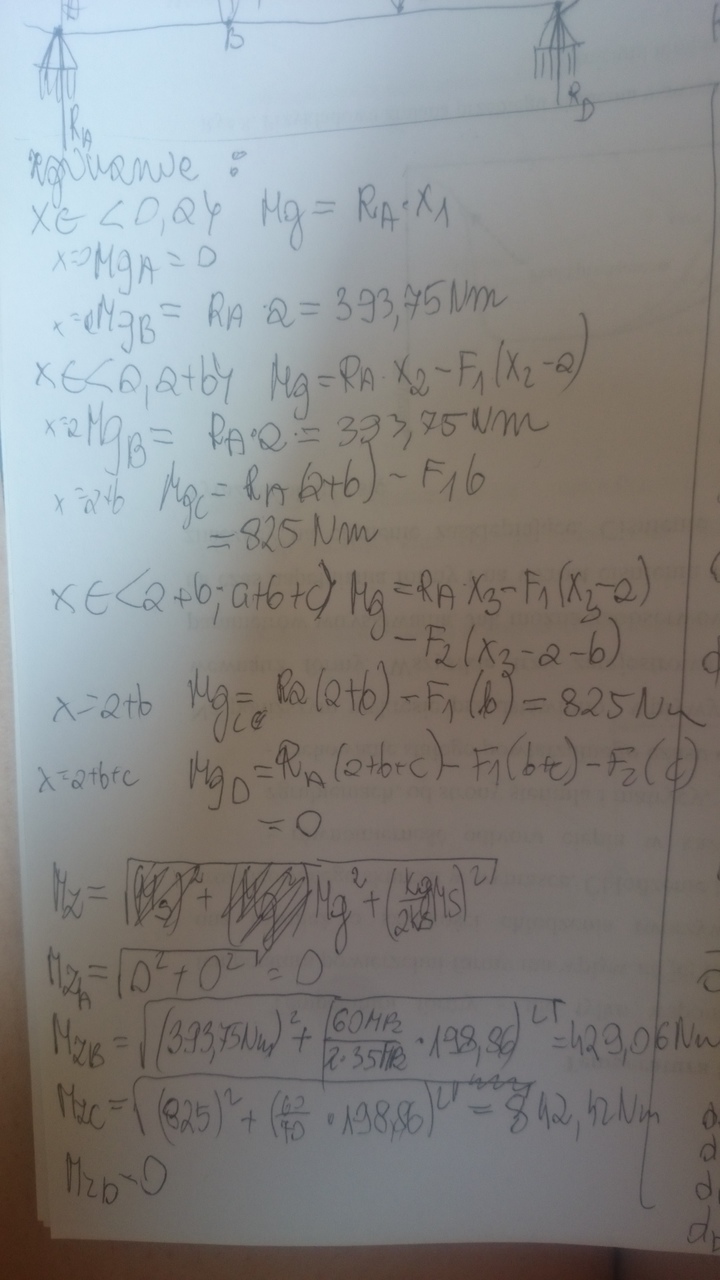 A
B
R_A
R_D
zginanie :
x∈<0,a> Mg = R_A·x₁
x=0 Mg_A = 0
x=a Mg_B = R_A·a = 393,75 Nm
x∈<a,a+b> Mg = R_A·x₂ − F₁(x₂−a)
x=a Mg_B = R_A·a = 393,75 Nm
x=a+b Mg_C = R_A(a+b) − F₁b
= 825 Nm
x∈<a+b; a+b+c> Mg = R_A x₃ − F₁(x₃−a)
− F₂(x₃−a−b)
x=a+b Mg_C = Ra(a+b) − F₁(b) = 825 Nm
x=a+b+c Mg_D = R_A(a+b+c) − F₁(b+c) − F₂(c)
= 0
Mz = √(Mg² + (kg/2ks Ms)²)
Mz_A = √(0² + 0²) = 0
Mz_B = √((393,75Nm)² + (60MPa/2·35MPa · 198,86)²) = 429,06 Nm
Mz_C = √((825)² + (60/70 · 198,86)²) = 842,42 Nm
Mz_D = 0